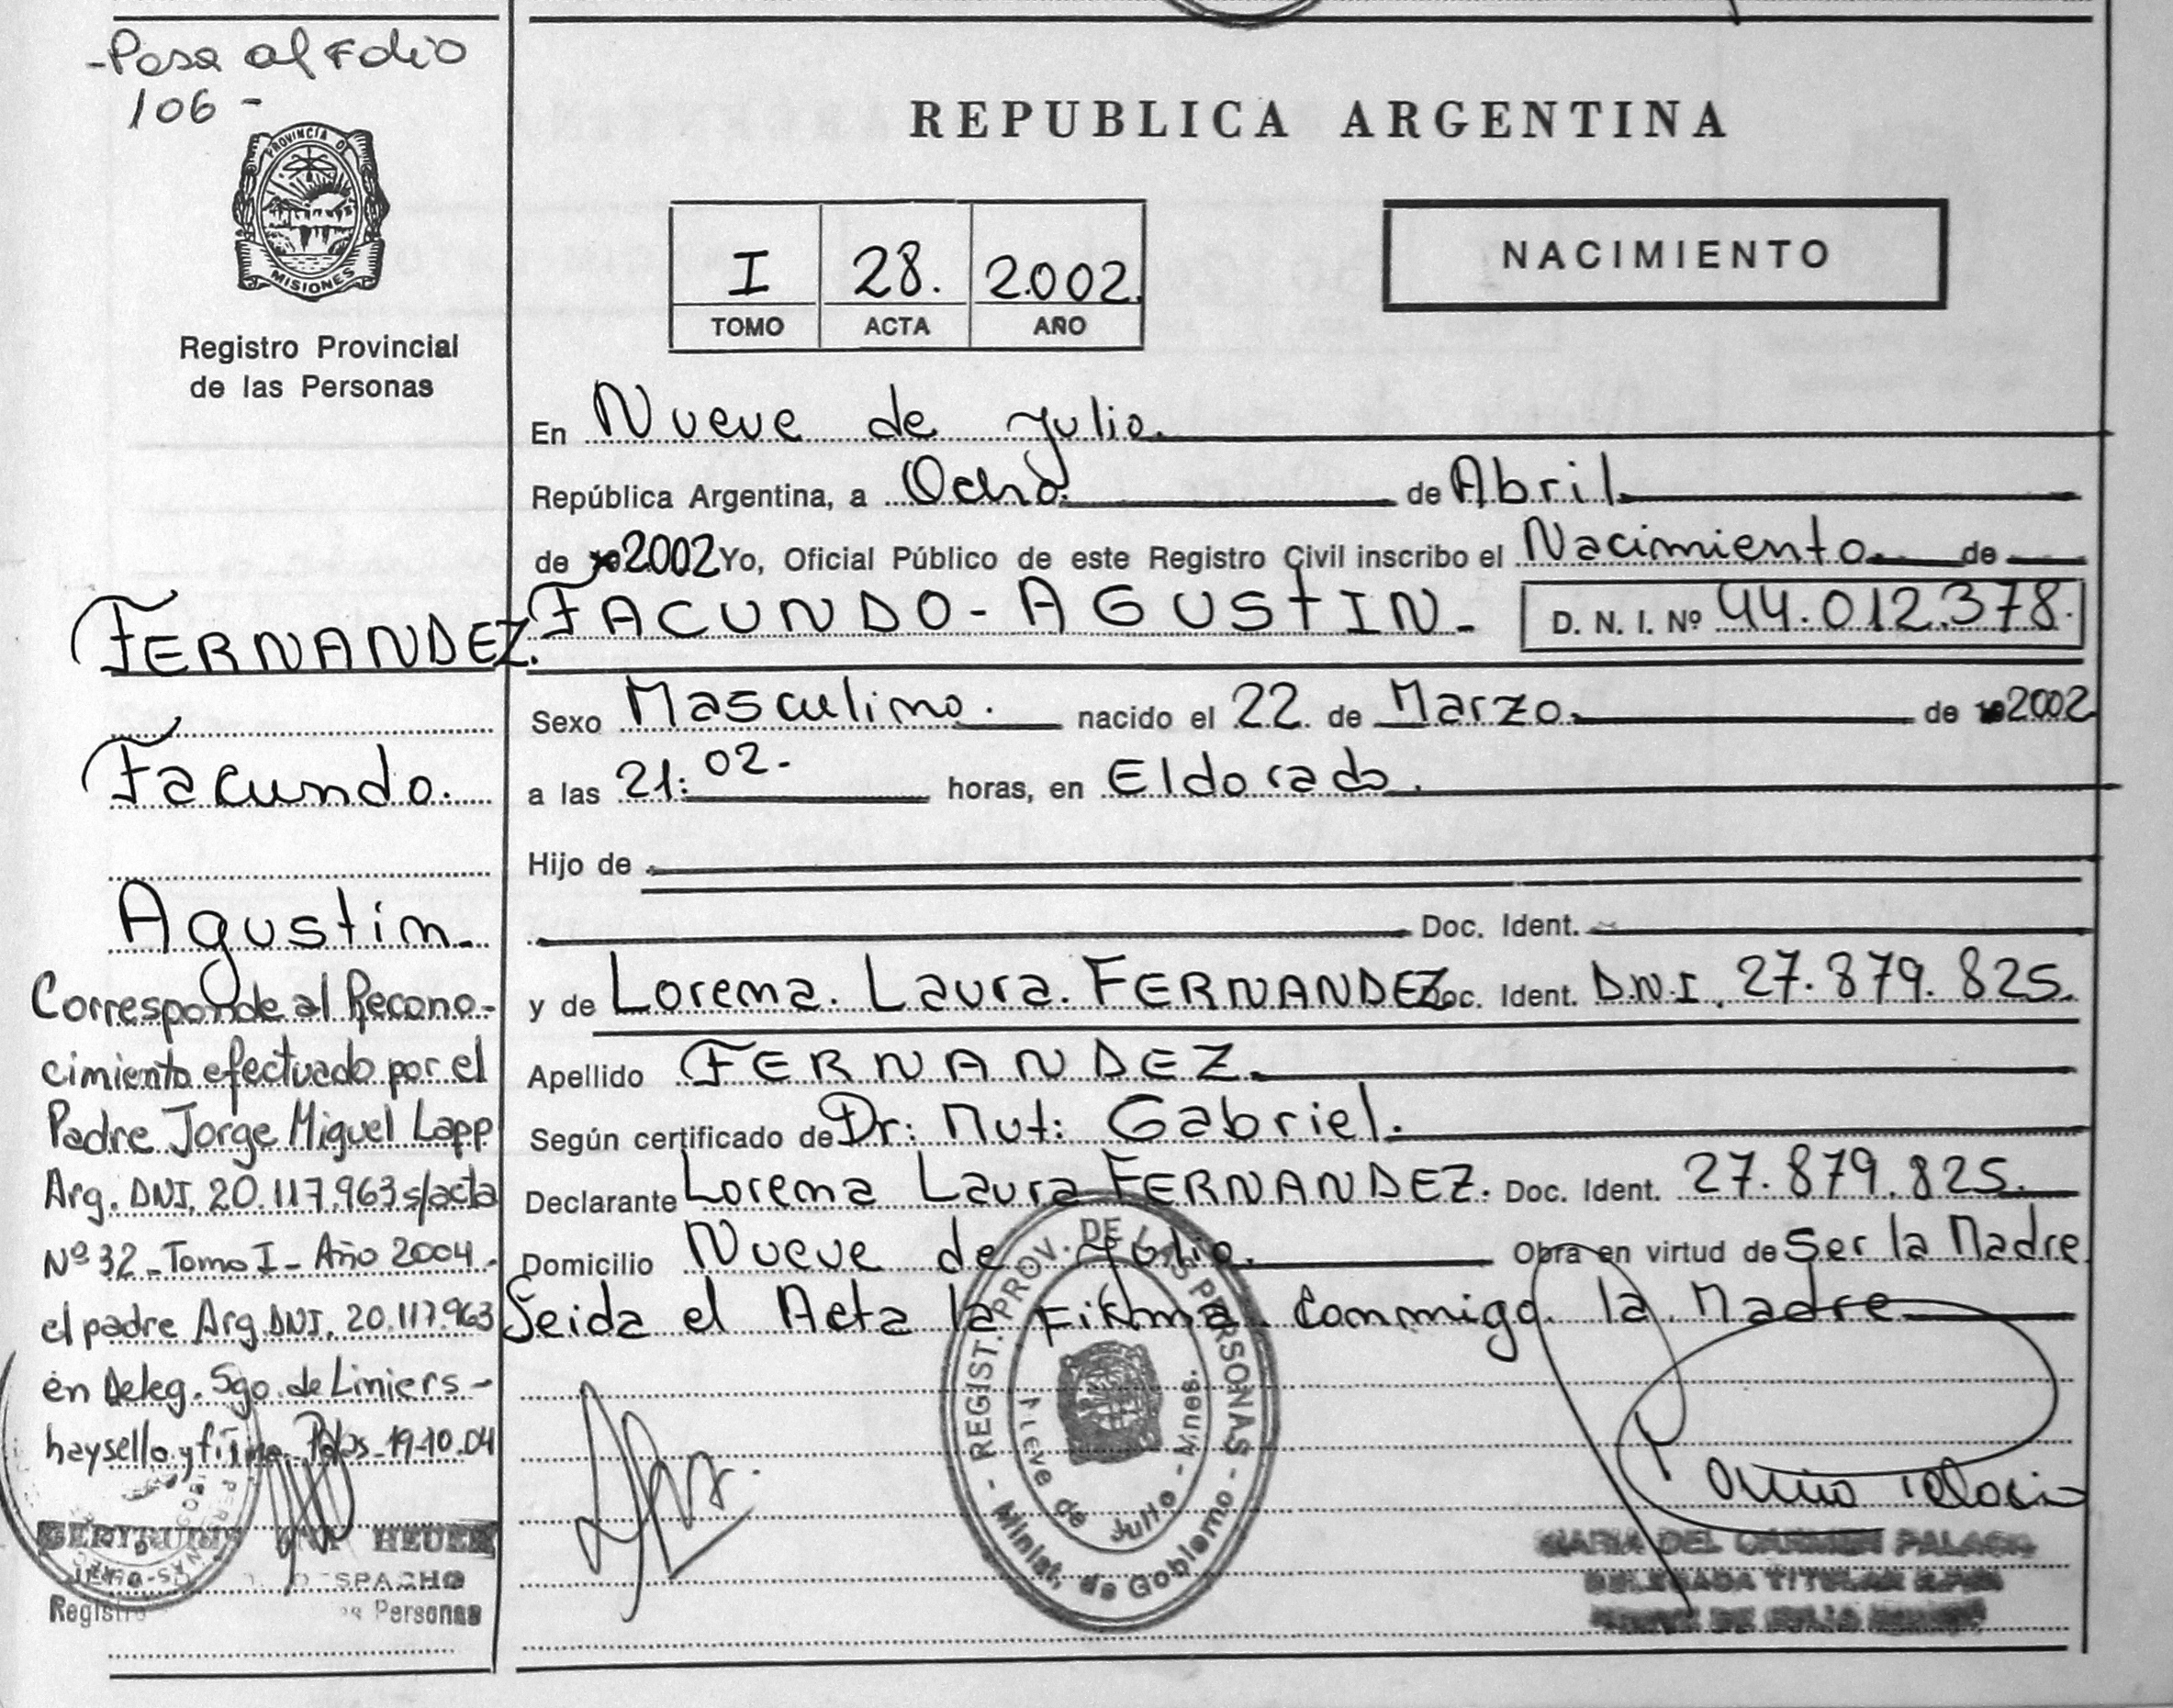 -Pasa al Folio
106-
PROVINCIA D
MISIONES
Registro Provincial
de las Personas
FERNANDEZ.
Facundo.
Agustin.
Corresponde al Recono-
cimiento efectuado por el
Padre Jorge Miguel Lapp
Arg. DNI. 20.117.963 s/acta
Nº 32 - Tomo I - Año 2004 -
el padre Arg DNI. 20.117.963
en Deleg. Sgo. de Liniers -
hay sello y firma. Pdas - 19-10-04
HEUER
DESPACHO
Registro Personas
REPUBLICA ARGENTINA
I 28. 2.002.
TOMO ACTA AÑO
NACIMIENTO
En Nueve de Julio.
República Argentina, a Ocho. de Abril
de 2.002 Yo, Oficial Público de este Registro Civil inscribo el Nacimiento de
FACUNDO - AGUSTIN - D. N. I. Nº 44.012.378.
Sexo Masculino. nacido el 22 de Marzo. de 2002
a las 21:02. horas, en Eldorado.
Hijo de
Doc. Ident.
y de Lorena. Laura. FERNANDEZ Doc. Ident. D.N.I. 27.879.825.
Apellido FERNANDEZ.
Según certificado de Dr: Mut: Gabriel.
Declarante Lorena Laura FERNANDEZ. Doc. Ident. 27.879.825.
Domicilio Nueve de Julio. Obra en virtud de Ser la Madre
Leida el Acta la Firma Conmigo la Madre
- REGIST. PROV. DE LAS PERSONAS -
Minist. de Gobierno
Nueve de Julio - Mnes.
MARIA DEL CARMEN PALACIO
DELEGADA TITULAR